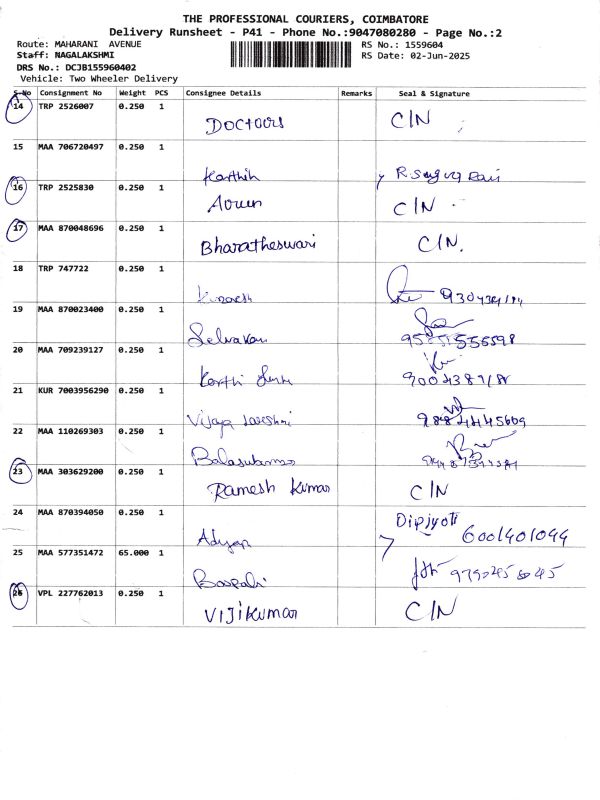 THE PROFESSIONAL COURIERS, COIMBATORE
Delivery Runsheet - P41 - Phone No.:9047080280 - Page No.:2
Route: MAHARANI AVENUE RS No.: 1559604
Staff: NAGALAKSHMI RS Date: 02-Jun-2025
DRS No.: DCJB155960402
Vehicle: Two Wheeler Delivery
S.No Consignment No Weight PCS Consignee Details Remarks Seal & Signature
14 TRP 2526007 0.250 1
Doctors C/N
15 MAA 706720497 0.250 1
Karthik
16 TRP 2525830 0.250 1
C/N
17 MAA 870048696 0.250 1
Bharatheswari C/N.
18 TRP 747722 0.250 1
19 MAA 870023400 0.250 1
Selvakani
20 MAA 709239127 0.250 1
21 KUR 7003956290 0.250 1
22 MAA 110269303 0.250 1
23 MAA 303629200 0.250 1
Ramesh Kumar C/N
24 MAA 870394050 0.250 1
Dipjyoti
6001401044
25 MAA 577351472 65.000 1
26 VPL 227762013 0.250 1
Vijikumar C/N